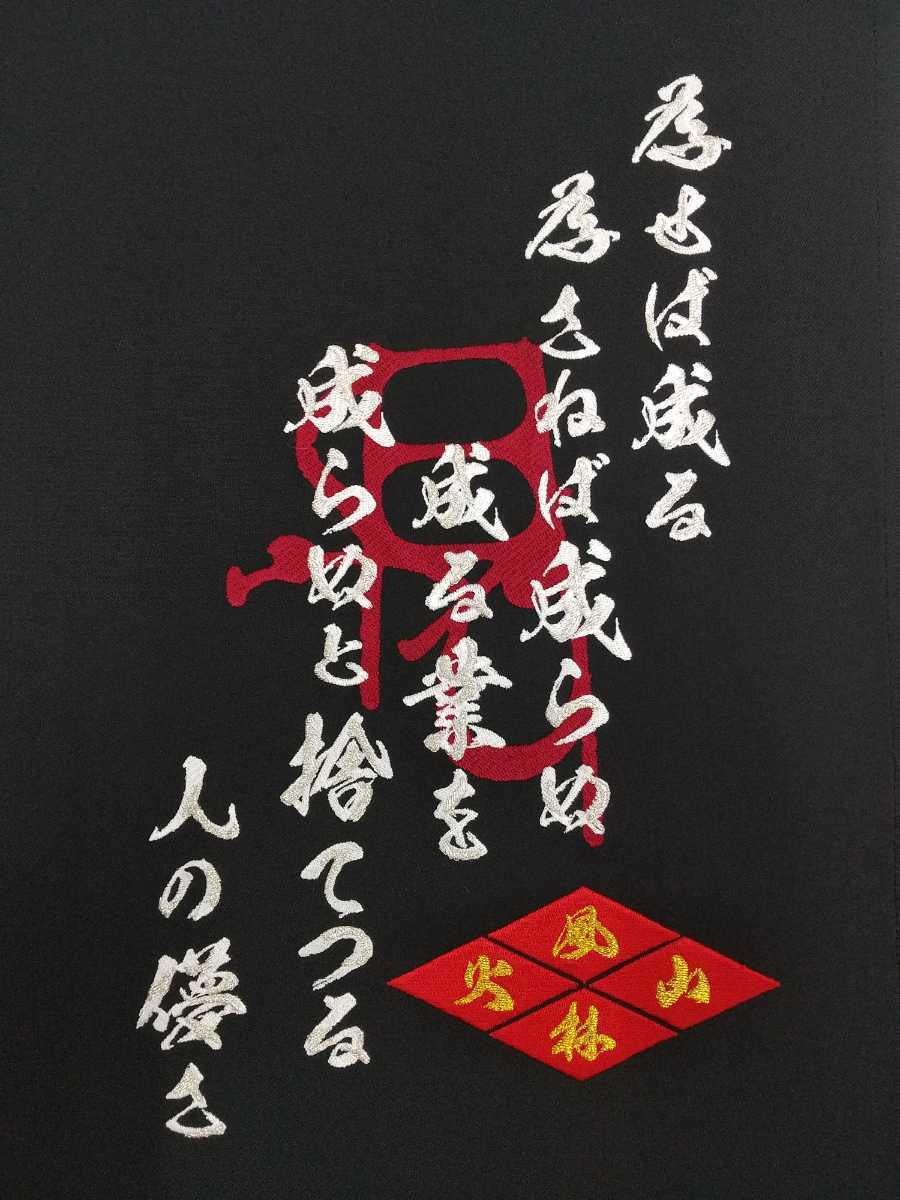 為せば成る
為さねば成らぬ
成る業を
成らぬと捨てつる
人の儚さ
風
林
火
山